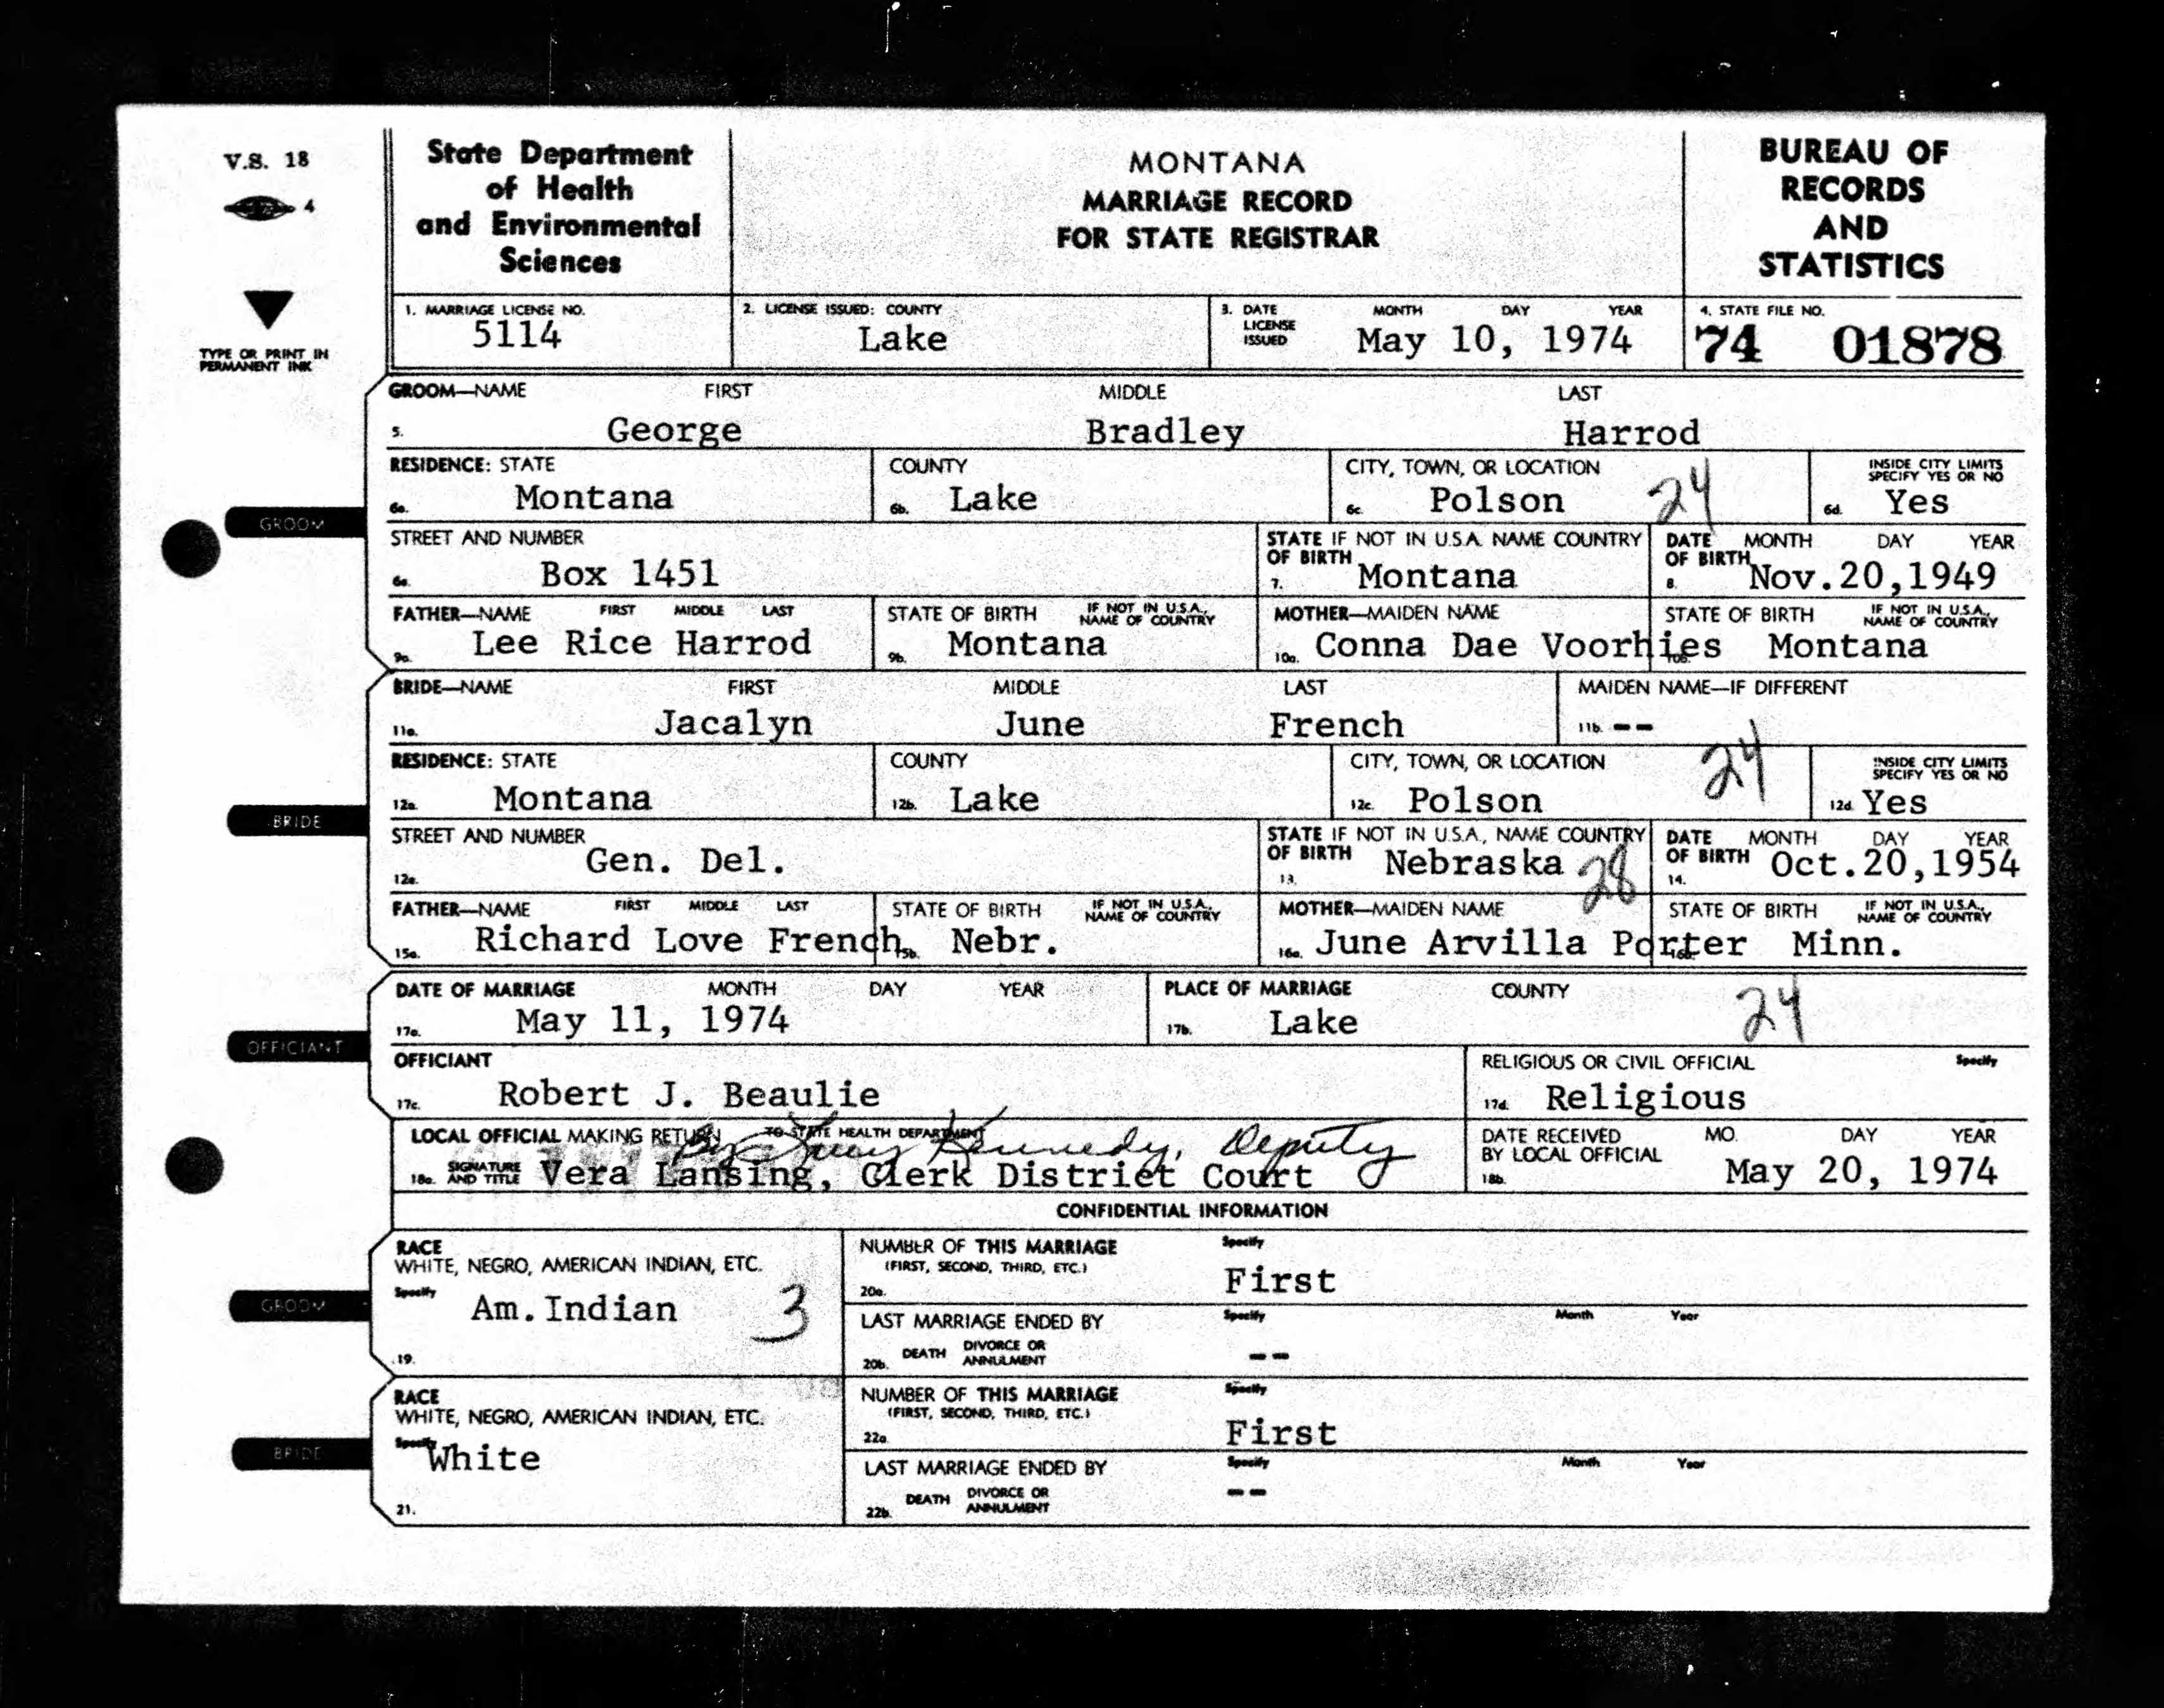 V.S. 18
4
TYPE OR PRINT IN
PERMANENT INK
State Department
of Health
and Environmental
Sciences
MONTANA
MARRIAGE RECORD
FOR STATE REGISTRAR
BUREAU OF
RECORDS
AND
STATISTICS
1. MARRIAGE LICENSE NO.
5114
2. LICENSE ISSUED: COUNTY
Lake
3. DATE LICENSE ISSUED MONTH DAY YEAR
May 10, 1974
4. STATE FILE NO.
74 01878
GROOM
GROOM—NAME FIRST MIDDLE LAST
5. George Bradley Harrod
RESIDENCE: STATE COUNTY CITY, TOWN, OR LOCATION INSIDE CITY LIMITS SPECIFY YES OR NO
6a. Montana 6b. Lake 6c. Polson 24 6d. Yes
STREET AND NUMBER STATE OF BIRTH IF NOT IN U.S.A. NAME COUNTRY DATE OF BIRTH MONTH DAY YEAR
6e. Box 1451 7. Montana 8. Nov.20,1949
FATHER—NAME FIRST MIDDLE LAST STATE OF BIRTH IF NOT IN U.S.A., NAME OF COUNTRY MOTHER—MAIDEN NAME STATE OF BIRTH IF NOT IN U.S.A., NAME OF COUNTRY
9a. Lee Rice Harrod 9b. Montana 10a. Conna Dae Voorhies 10b. Montana
BRIDE
BRIDE—NAME FIRST MIDDLE LAST MAIDEN NAME—IF DIFFERENT
11a. Jacalyn June French 11b. --
RESIDENCE: STATE COUNTY CITY, TOWN, OR LOCATION INSIDE CITY LIMITS SPECIFY YES OR NO
12a. Montana 12b. Lake 12c. Polson 24 12d. Yes
STREET AND NUMBER STATE OF BIRTH IF NOT IN U.S.A., NAME COUNTRY DATE OF BIRTH MONTH DAY YEAR
12e. Gen. Del. 13. Nebraska 28 14. Oct.20,1954
FATHER—NAME FIRST MIDDLE LAST STATE OF BIRTH IF NOT IN U.S.A., NAME OF COUNTRY MOTHER—MAIDEN NAME STATE OF BIRTH IF NOT IN U.S.A., NAME OF COUNTRY
15a. Richard Love French 15b. Nebr. 16a. June Arvilla Porter 16b. Minn.
OFFICIANT
DATE OF MARRIAGE MONTH DAY YEAR PLACE OF MARRIAGE COUNTY
17a. May 11, 1974 17b. Lake 24
OFFICIANT RELIGIOUS OR CIVIL OFFICIAL Specify
17c. Robert J. Beaulie 17d. Religious
LOCAL OFFICIAL MAKING RETURN TO STATE HEALTH DEPARTMENT DATE RECEIVED BY LOCAL OFFICIAL MO. DAY YEAR
By Kennedy, Deputy
18a. SIGNATURE AND TITLE Vera Lansing, Clerk District Court 18b. May 20, 1974
CONFIDENTIAL INFORMATION
GROOM
RACE
WHITE, NEGRO, AMERICAN INDIAN, ETC.
Specify
Am.Indian 3
19.
NUMBER OF THIS MARRIAGE Specify
(FIRST, SECOND, THIRD, ETC.)
20a. First
LAST MARRIAGE ENDED BY Specify Month Year
20b. DEATH DIVORCE OR ANNULMENT --
BRIDE
RACE
WHITE, NEGRO, AMERICAN INDIAN, ETC.
Specify
White
21.
NUMBER OF THIS MARRIAGE Specify
(FIRST, SECOND, THIRD, ETC.)
22a. First
LAST MARRIAGE ENDED BY Specify Month Year
22b. DEATH DIVORCE OR ANNULMENT --